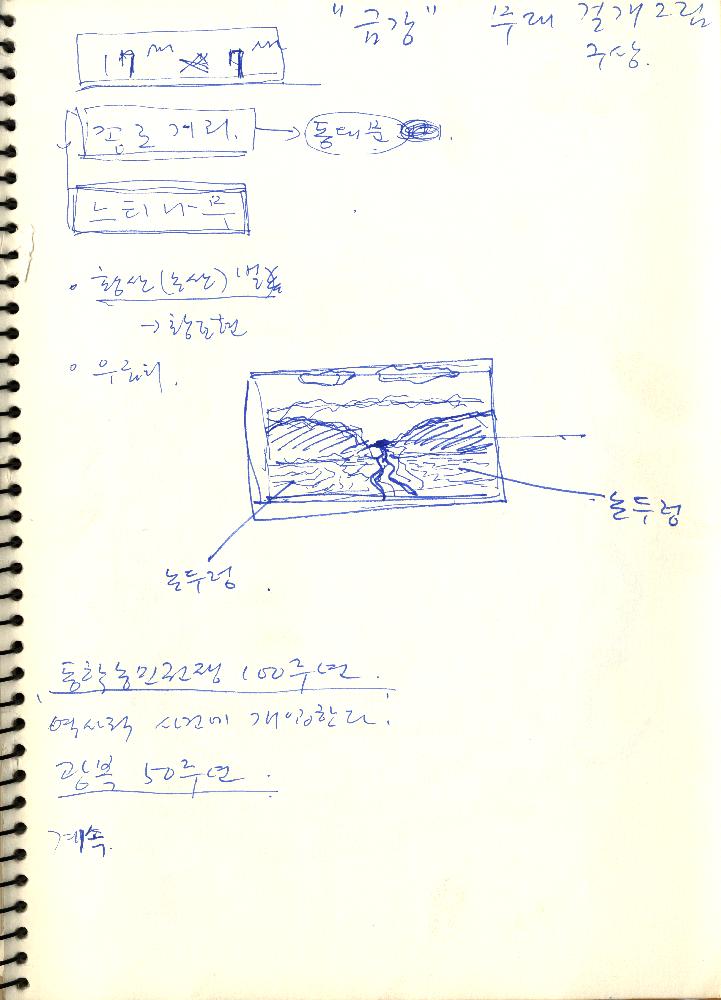 "금강" 무대 걸개그림
구상.
17m × 7m
종로거리. → 동대문
느티나무
• 황산(논산)벌
→ 황토현
• 우금치.
논두렁
논두렁
동학농민전쟁 100주년.
역사적 사건에 개입한다.
광복 50주년.
계속.